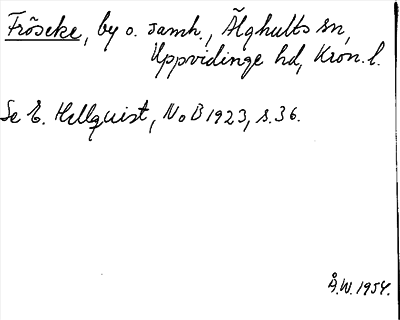 Fröseke, by o. samh., Älghults sn,
Uppvidinge hd, Kron. l.
Se E. Hellquist, NoB 1923, s. 36.
Å.W. 1954.